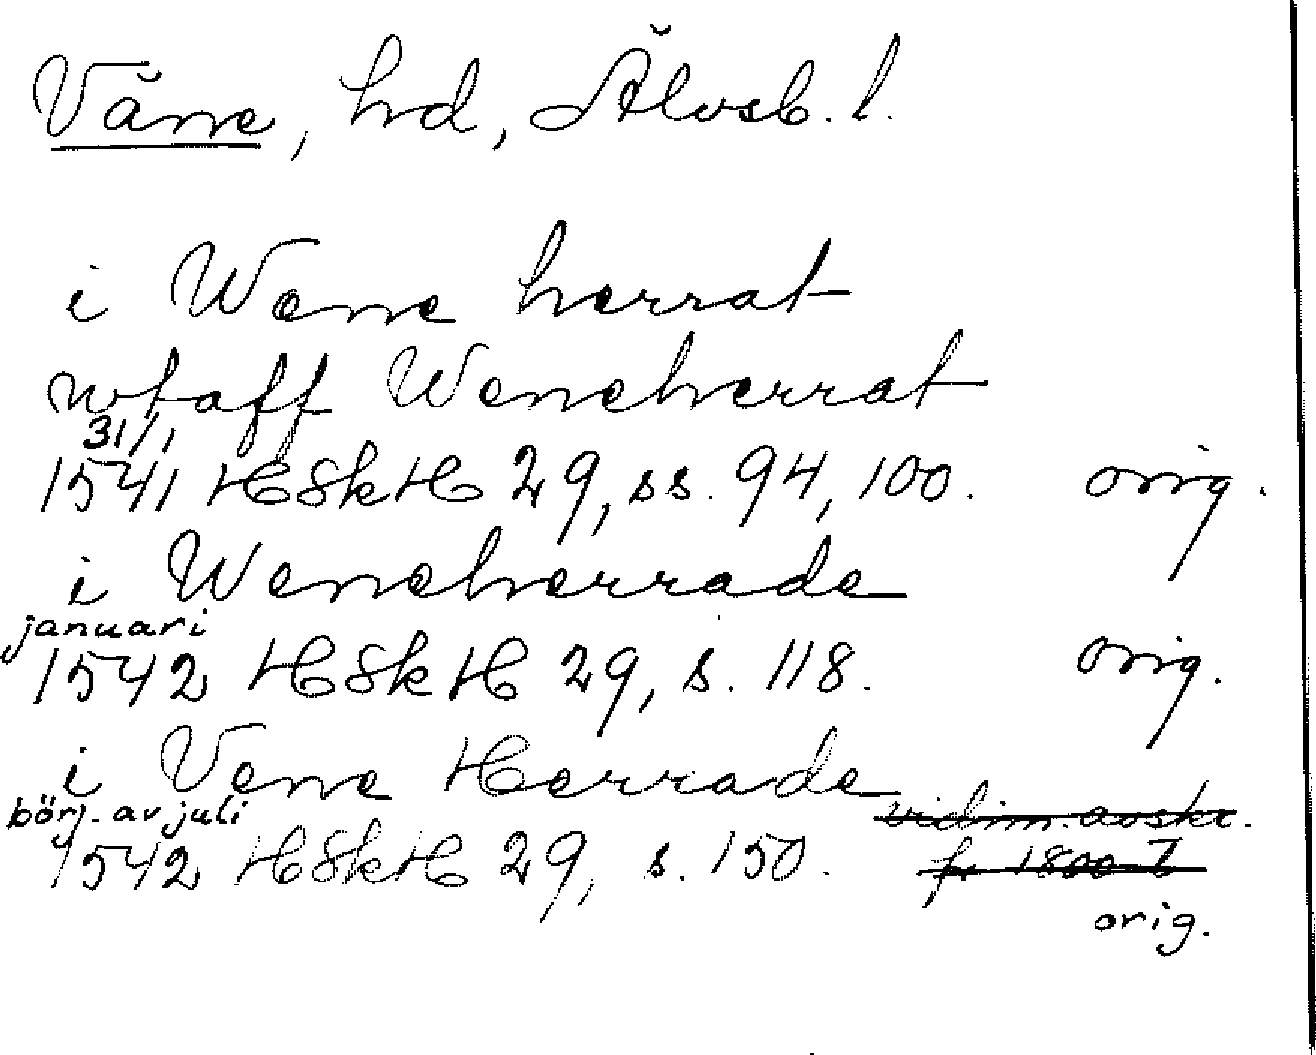 Väne, hd, Älvsb. l.
i Wene herrat
wtaff Weneherrat
31/1
1541 HSkH 29, ss. 94, 100. orig.
i Weneherrade
januari
1542 HSkH 29, s. 118. orig.
i Vene Herrade
börj. av juli
vidim. avskr.
1542 HSkH 29, s. 150. fr 1800-t
orig.